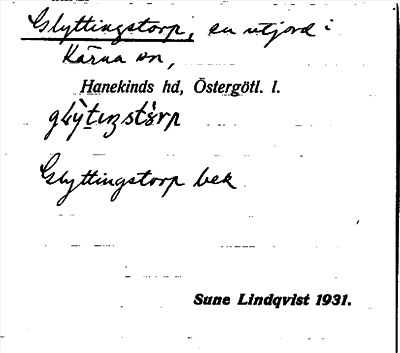 Glyttingstorp, en utjord i
Kärna sn,
Hanekinds hd, Östergötl. l.
Glyttingstorp bek
Sune Lindqvist 1931.